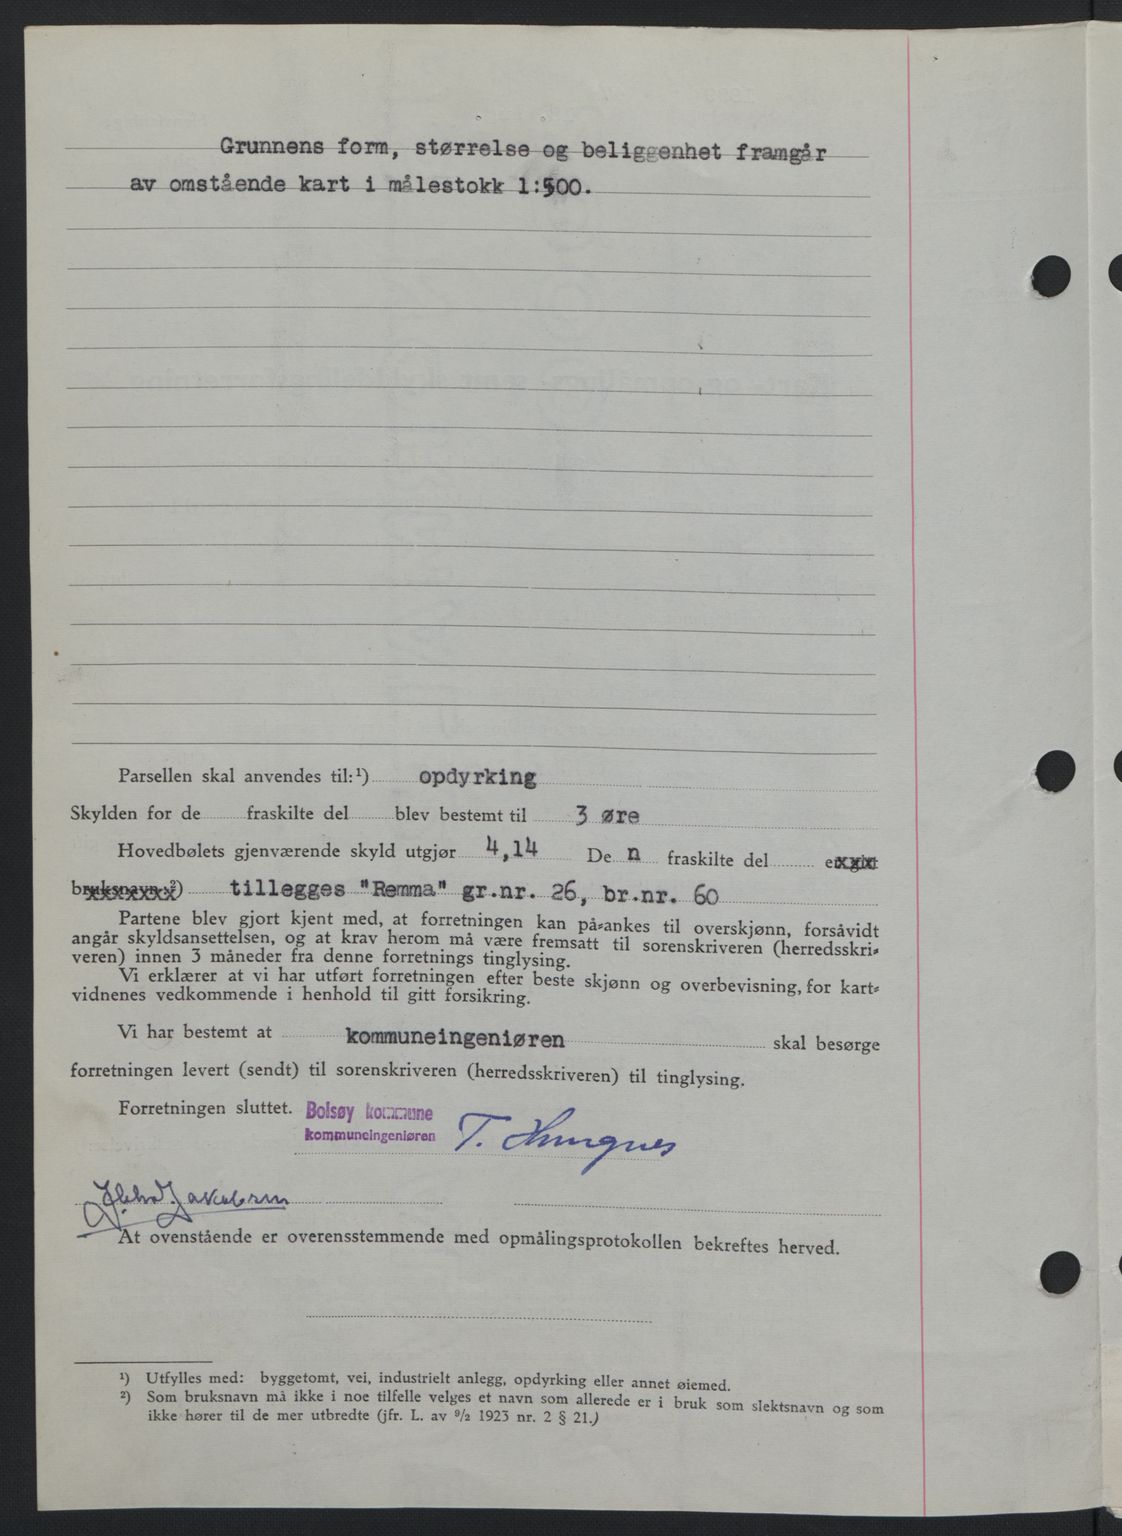 Grunnens form, størrelse og beliggenhet framgår
av omstående kart i målestokk 1:500.
Parsellen skal anvendes til:¹) opdyrking
Skylden for de fraskilte del blev bestemt til 3 øre
Hovedbølets gjenværende skyld utgjør 4,14 De n fraskilte del er gitt
bruksnavn ²) tillegges "Remma" gr.nr. 26, br.nr. 60
Partene blev gjort kjent med, at forretningen kan på=ankes til overskjønn, forsåvidt
angår skyldsansettelsen, og at krav herom må være fremsatt til sorenskriveren (herredsskri=
veren) innen 3 måneder fra denne forretnings tinglysing.
Vi erklærer at vi har utført forretningen efter beste skjønn og overbevisning, for kart=
vidnenes vedkommende i henhold til gitt forsikring.
Vi har bestemt at kommuneingeniøren skal besørge
forretningen levert (sendt) til sorenskriveren (herredsskriveren) til tinglysing.
Forretningen sluttet. Bolsøy kommune
kommuneingeniøren T. Hungnes
Jakobsen
At ovenstående er overensstemmende med opmålingsprotokollen bekreftes herved.
¹) Utfylles med: byggetomt, vei, industrielt anlegg, opdyrking eller annet øiemed.
²) Som bruksnavn må ikke i noe tilfelle velges et navn som allerede er i bruk som slektsnavn og som
ikke hører til de mer utbredte (jfr. L. av 9/2 1923 nr. 2 § 21.)